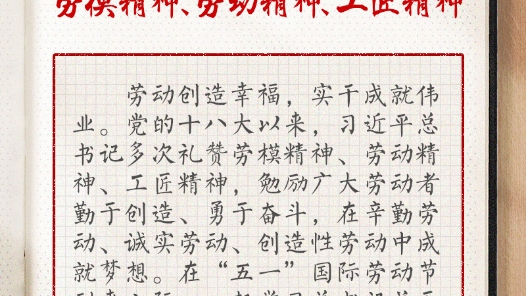 劳模精神、劳动精神、工匠精神
劳动创造幸福，实干成就伟
业。党的十八大以来，习近平总
书记多次礼赞劳模精神、劳动精
神、工匠精神，勉励广大劳动者
勤于创造、勇于奋斗，在辛勤劳
动、诚实劳动、创造性劳动中成
就梦想。在“五一”国际劳动节